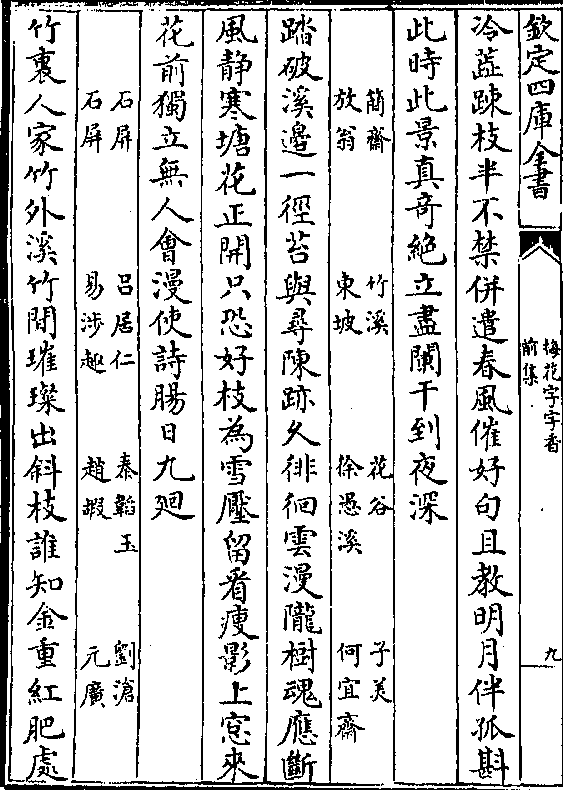 欽定四庫全書
梅花字字香
前集
九
冷蘂踈枝半不禁併遣春風催好句且教明月伴孤斟
此時此景真奇絶立盡闌干到夜深
簡齋　竹溪　花谷　子美
放翁　東坡　徐愚溪　何宜齋
踏破溪邉一徑苔與尋陳跡久徘徊雲漫隴樹魂應斷
風静寒塘花正開只恐好枝為雪壓留看瘦影上窓來
花前獨立無人會漫使詩腸日九廻
石屏　吕居仁　秦韜玉　劉滄
石屏　易涉趣　趙嘏　元廣
竹裏人家竹外溪竹間璀璨出斜枝誰知金重紅肥處